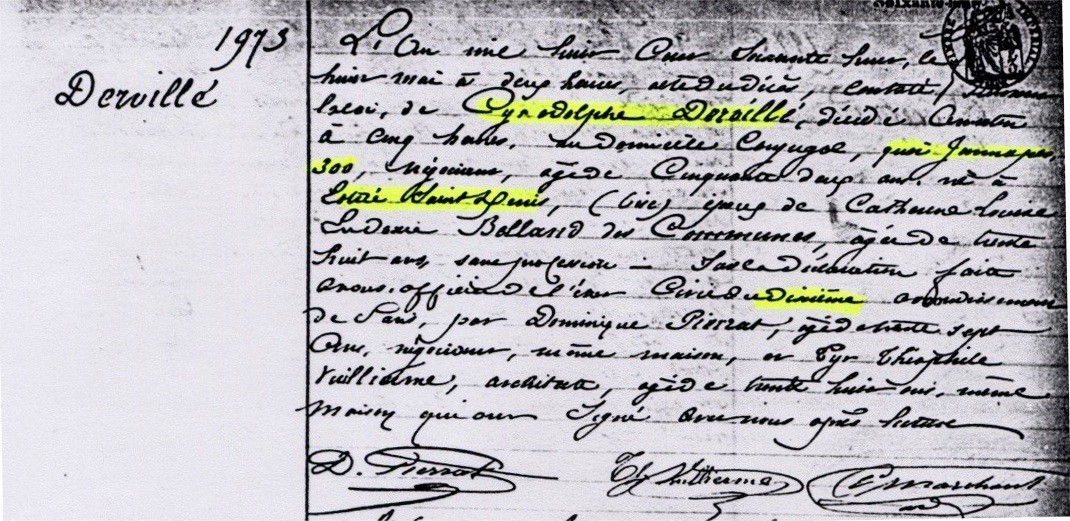 1973
Dervillé
L'An mil huit Cent soixante huit, le
huit mai à deux heures, acte de décès, constaté,
de Cyr Adolphe Dervillé, décédé Avant hier
à Cinq heures, au domicile Conjugal, quai Jemmapes,
300, négociant, âgé de Cinquante deux ans. né à
Saint Denis, époux de Catherine Louise
Bolland des Communes, âgée de trente
huit ans, sans profession — Sur la déclaration faite
à nous officier de l'état Civil du dixième arrondissement
de Paris, par Dominique Pierrat, âgé de trente sept
Ans, négociant, même maison, et Cyr Théophile
Vuillierme, architecte, âgé de trente huit ans, même
Maison qui ont Signé avec nous après lecture
D. Pierrat Th Vuillierme Marchant